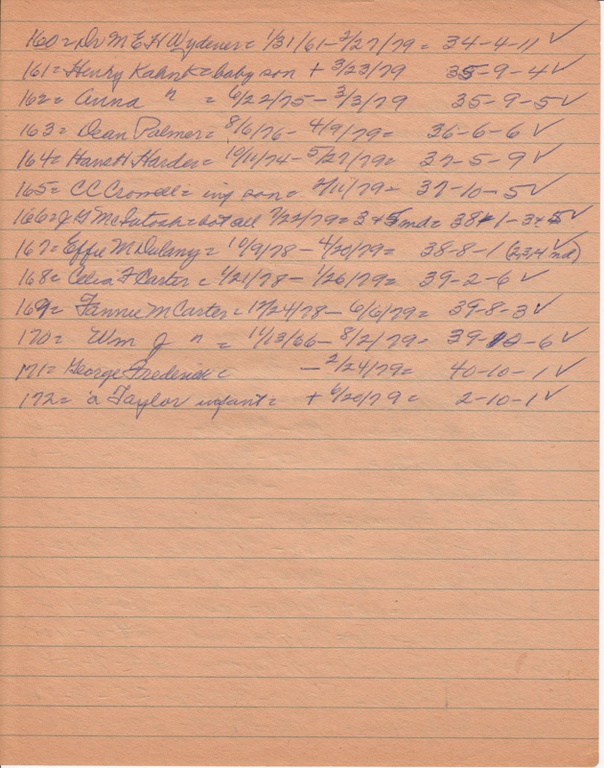 160= Dr M E H Wydener= 1/31/61-2/27/79= 34-4-11 ✓
161= Henry Kahnk= baby son + 3/23/79 35-9-4 ✓
162= Anna " = 6/22/75-3/3/79 35-9-5 ✓
163= Dean Palmer= 8/6/76-4/9/79= 36-6-6 ✓
164= Hans H Harder= 10/11/74-5/27/79= 37-5-9 ✓
165= CC Cromell= inf son= 2/11/79- 37-10-5 ✓
166= J G McIntosh= bot all 7/22/79= 3+5 md= 38-1-3+5 ✓
167= Effie M Dulany= 10/9/78-4/20/79= 38-8-1 (2,3,4 md) ✓
168= Celia F Carter= 1/21/78-1/26/79= 39-2-6 ✓
169= Fannie M Carter= 12/24/78-6/6/79= 39-8-3 ✓
170= Wm J " = 11/13/66-8/2/79= 39-10-6 ✓
171= George Frederick= -2/24/79= 40-10-1 ✓
172= a Taylor infant= + 6/20/79= 2-10-1 ✓